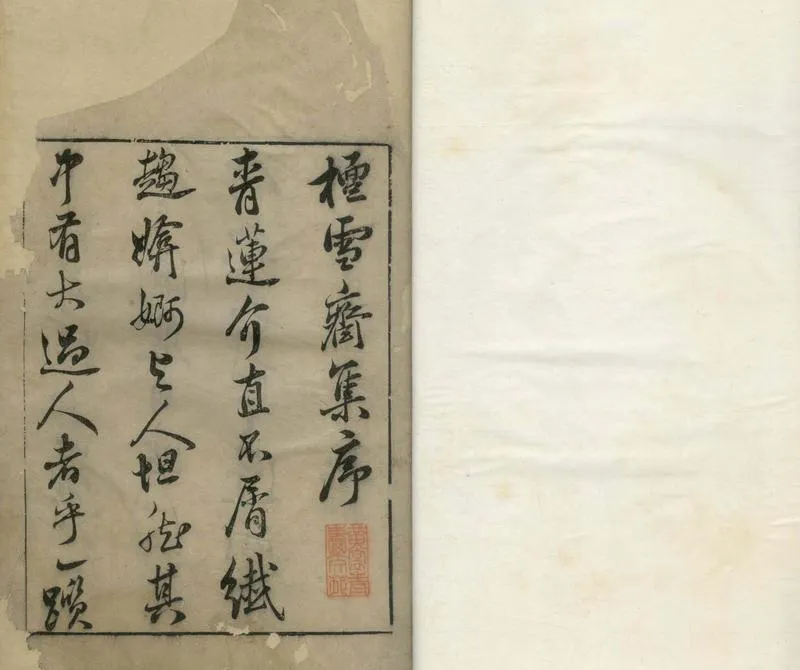 檀雪齋集序
青蓮介直不屑纖
趨媕婀与人坦然其
中有大過人者乎一躓